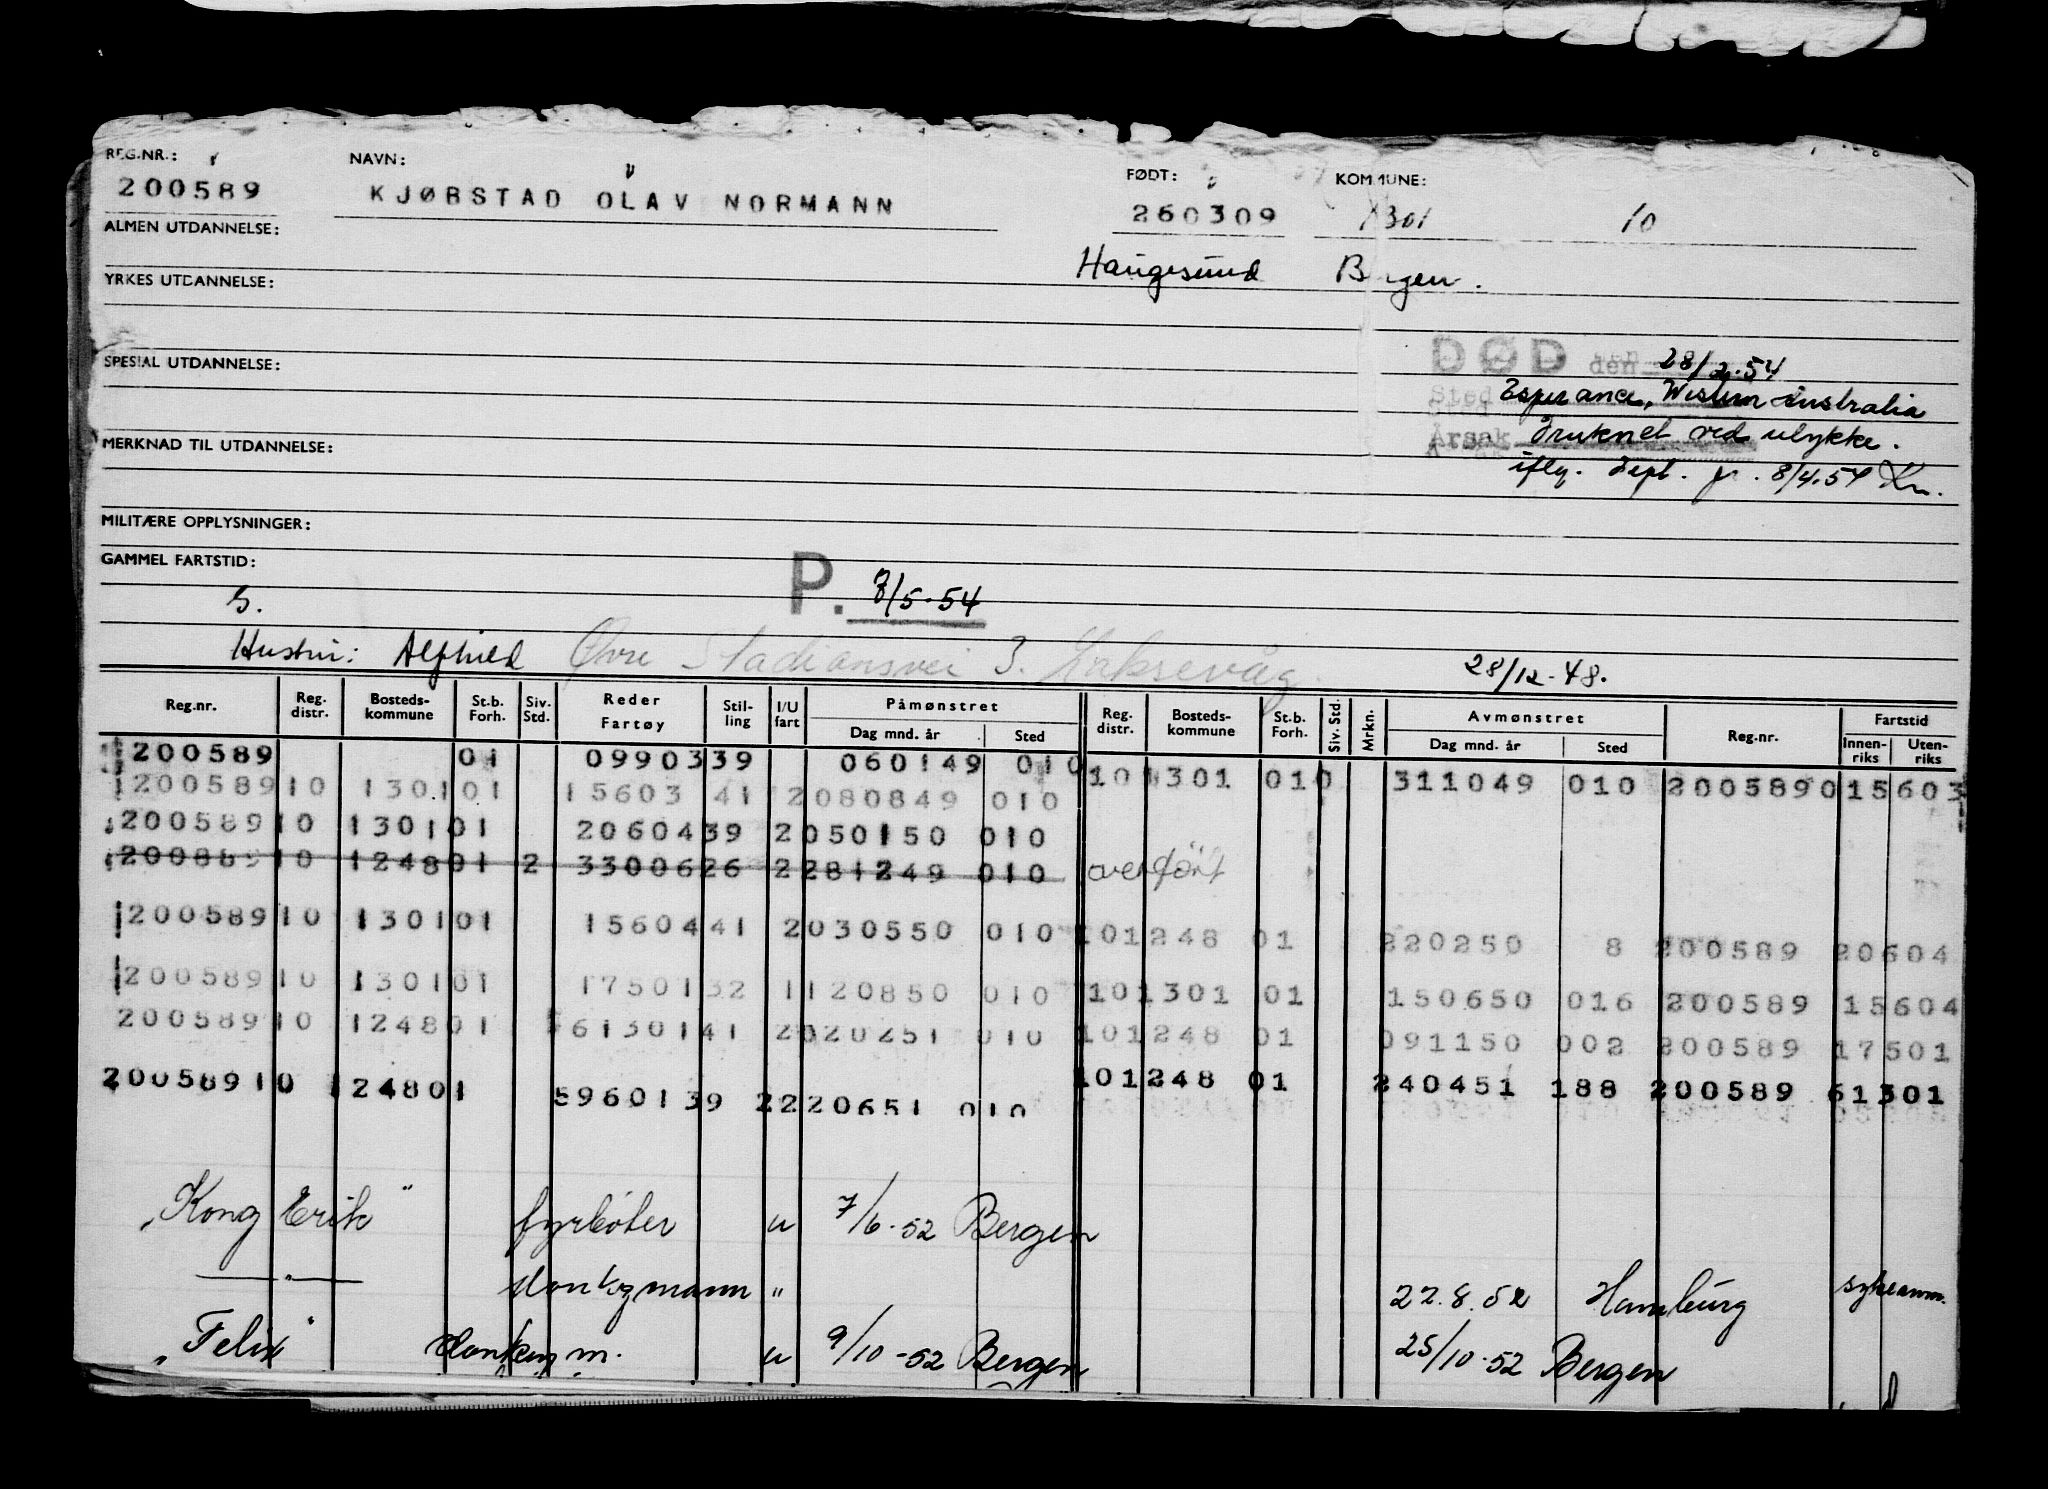 REG.NR.: NAVN: FØDT: KOMMUNE:
200589 KJØRSTAD OLAV NORMANN 260309 1301 10
ALMEN UTDANNELSE:
Haugesund Bergen.
YRKES UTDANNELSE:
DØD den 28/2.54
SPESIAL UTDANNELSE:
Sted Esperance, Western Australia
Årsak Druknet ved ulykke.
MERKNAD TIL UTDANNELSE:
iflg. 8/4.54 Kn.
MILITÆRE OPPLYSNINGER:
GAMMEL FARTSTID:
P. 7/5-54
S.
Hustru: Alfhild Øvre Stadionsvei 3. Laksevåg. 28/12-48.
Reg.nr. Reg. distr. Bosteds-kommune St.b. Forh. Siv. Std. Reder Fartøy Stil-ling I/U fart Påmønstret Dag mnd. år Sted Reg. distr. Bosteds-kommune St.b. Forh. Siv. Std. Mrkn. Avmønstret Dag mnd. år Sted Reg.nr. Fartstid Innen-riks Uten-riks
200589 01 0990339 060149 010
101301 010 311049 010 2005890 15603
20058910 130101 15603 41 2080849 010
20058910 130101 2060439 2050150 010
20058910 124801 2 3300626 2281249 010 overført
20058910 130101 1560441 2030550 010
101248 01 220250 8 200589 20604
20058910 130101 1750132 1120850 010
101301 01 150650 016 200589 15604
20058910 124801 6130141 2020251 010
101248 01 091150 002 200589 17501
20058910 124801 5960139 2220651 010
101248 01 240451 188 200589 61301
"Kong Erik" fyrbøter u 7/6-52 Bergen
—"— donkeymann " 22.8.52 Hamburg
"Felix" donkeym. u 9/10-52 Bergen 25/10-52 Bergen